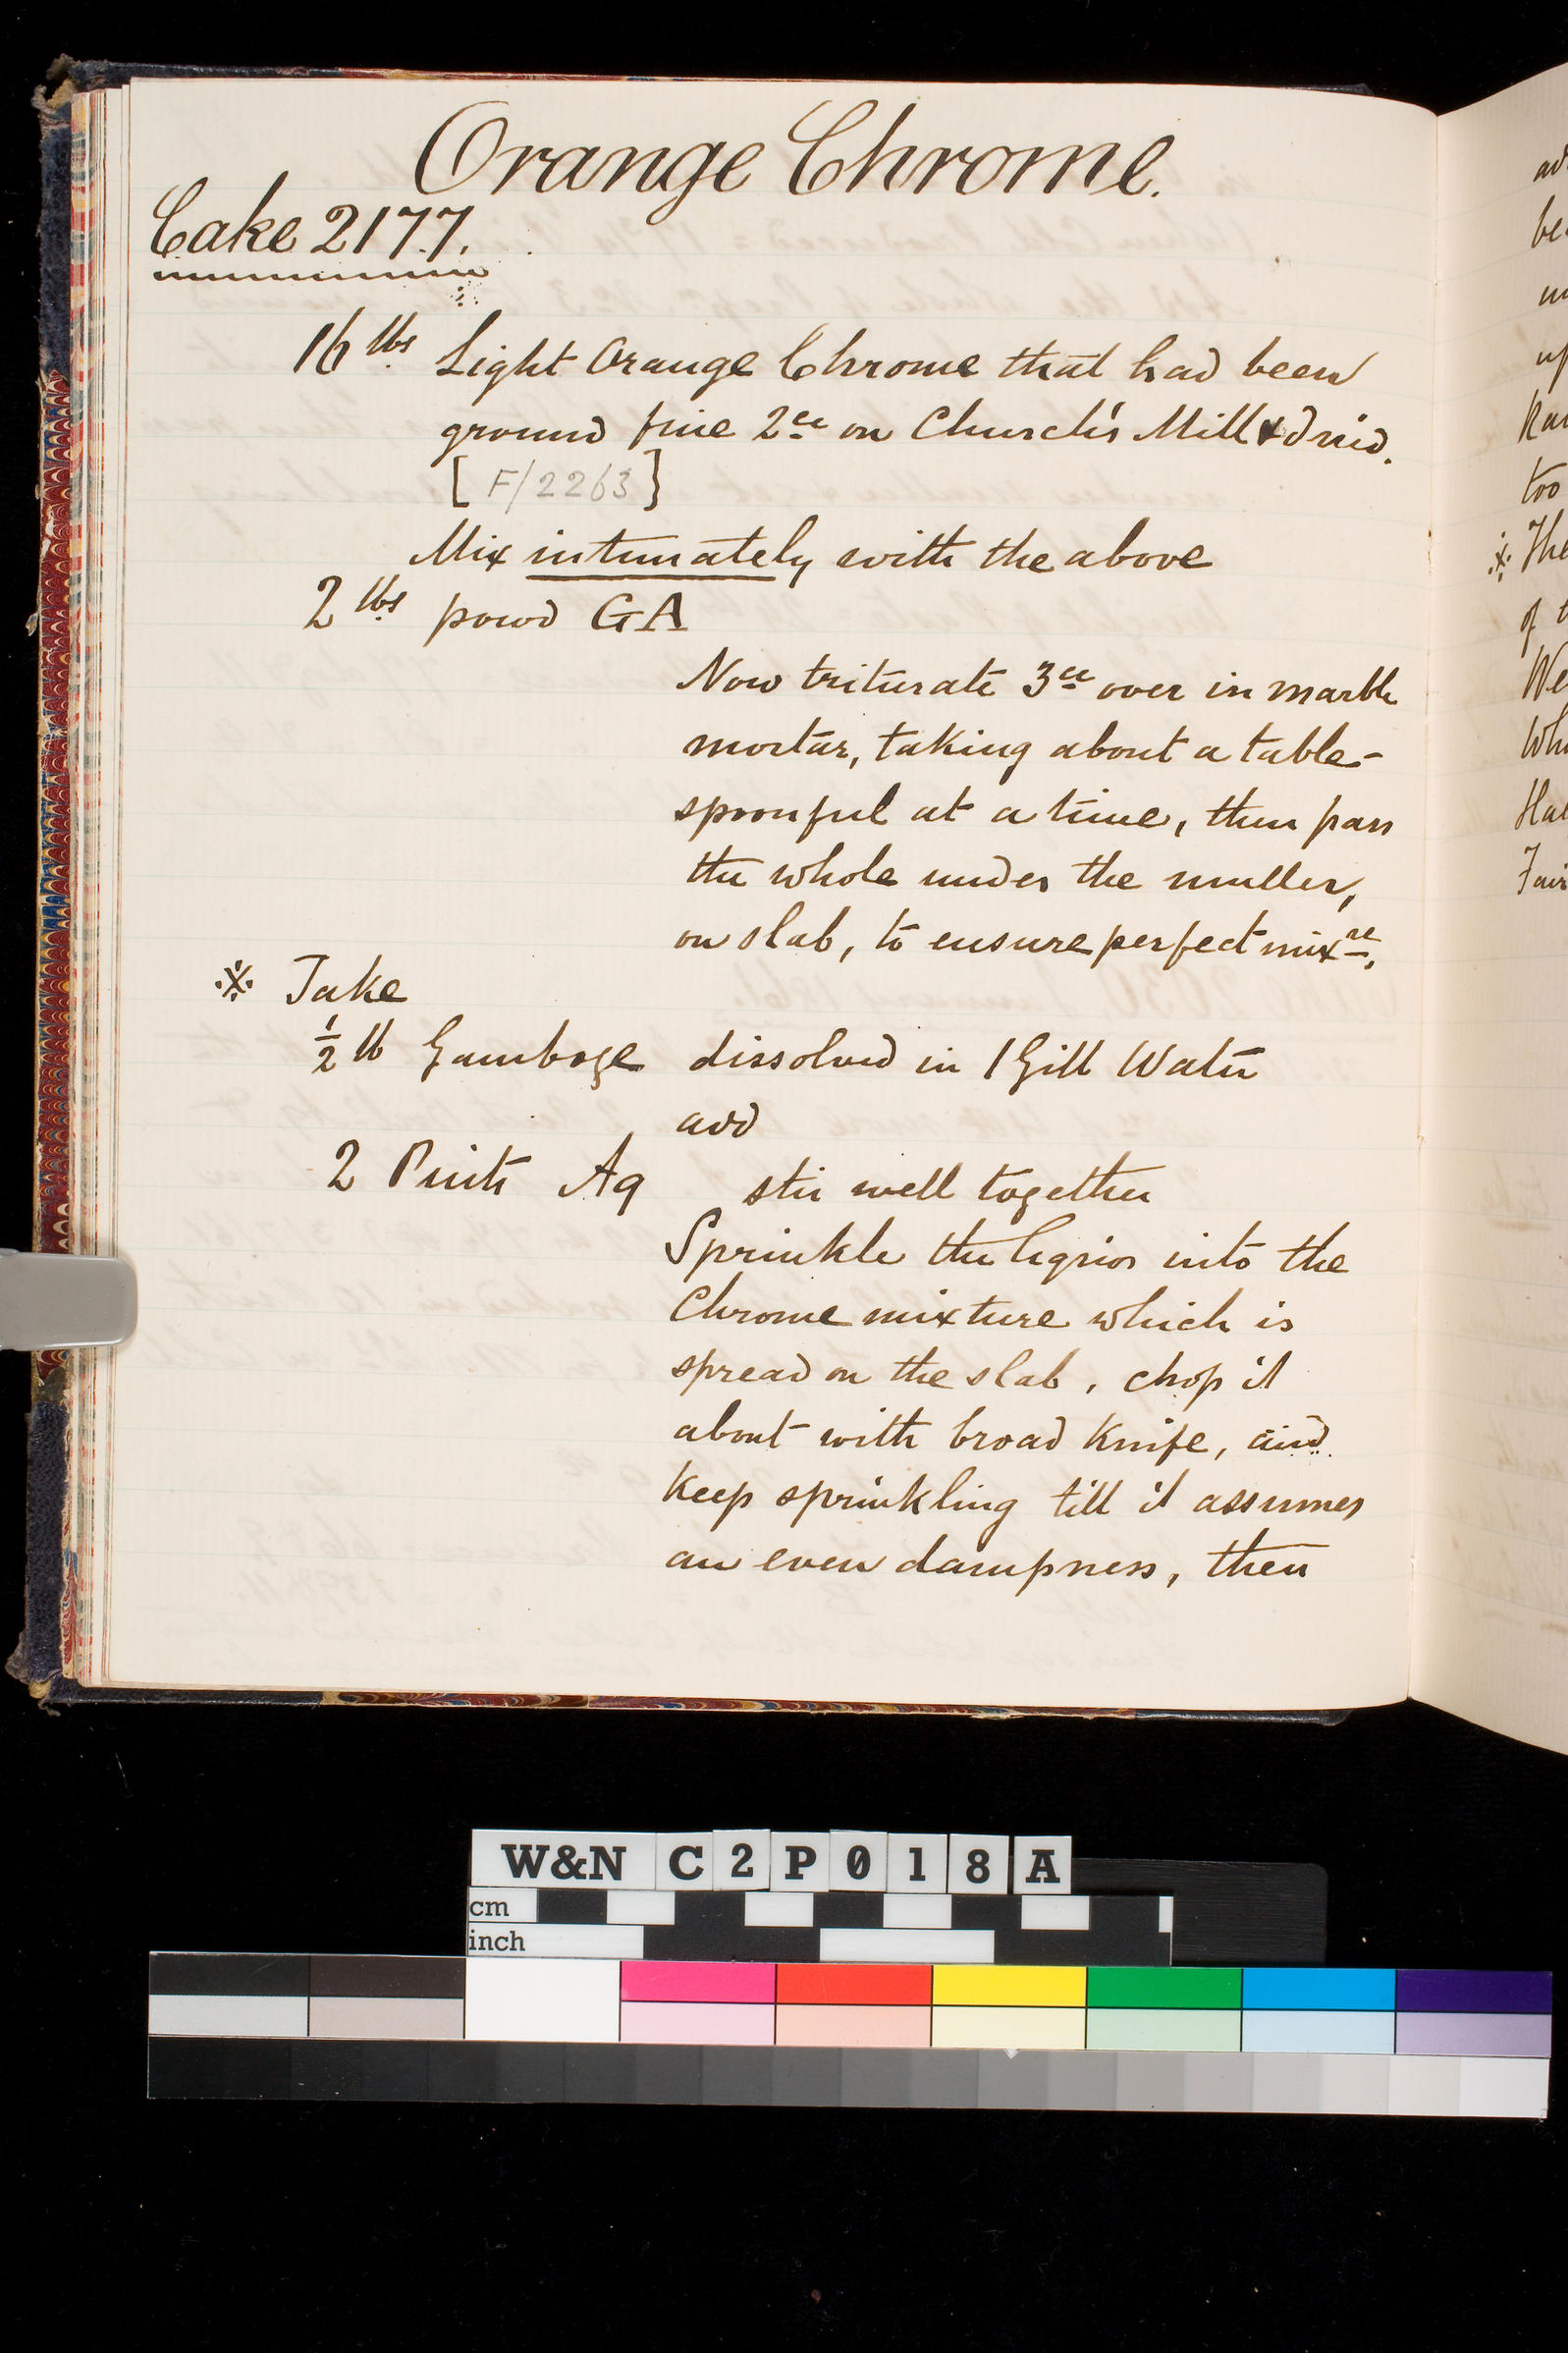 Orange Chrome.
Cake 2177.
16 lbs Light Orange Chrome that had been
ground fine 2ce on Church's Mill & dried.
[F/2263]
Mix intimately with the above
2 lbs powd GA
Now triturate 3ce over in marble
mortar, taking about a table-
spoonful at a time, then pass
the whole under the muller,
on slab, to ensure perfect mixre.
※ Take
½ lb Gamboge dissolved in 1 Gill Water
add
2 Pints Aq stir well together
Sprinkle the liquor into the
Chrome mixture which is
spread on the slab, chop it
about with broad Knife, and
Keep sprinkling till it assumes
an even dampness, then
too
※ The
of
We
W&N C2P018A
cm
inch